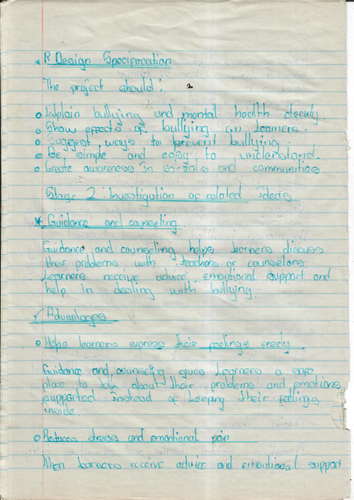 * Design Specification
The project should:
o Explain bullying and mental health clearly.
o Show effects of bullying on learners.
o Suggest ways to prevent bullying.
o Be simple and easy to understand.
o Create awareness in and communities
Stage 2: Investigation of related ideas
* Guidance and counseling
Guidance and counseling helps learners discuss
their problems with teachers or counselors.
Learners receive advice, emotional support and
help in dealing with bullying.
✓ Advantages
o Helps learners express their feelings freely.
Guidance and counseling gives learners a safe
place to talk about their problems and emotions
supported instead of keeping their feelings
inside.
o Reduces stress and emotional pain
When learners receive advice and emotional support